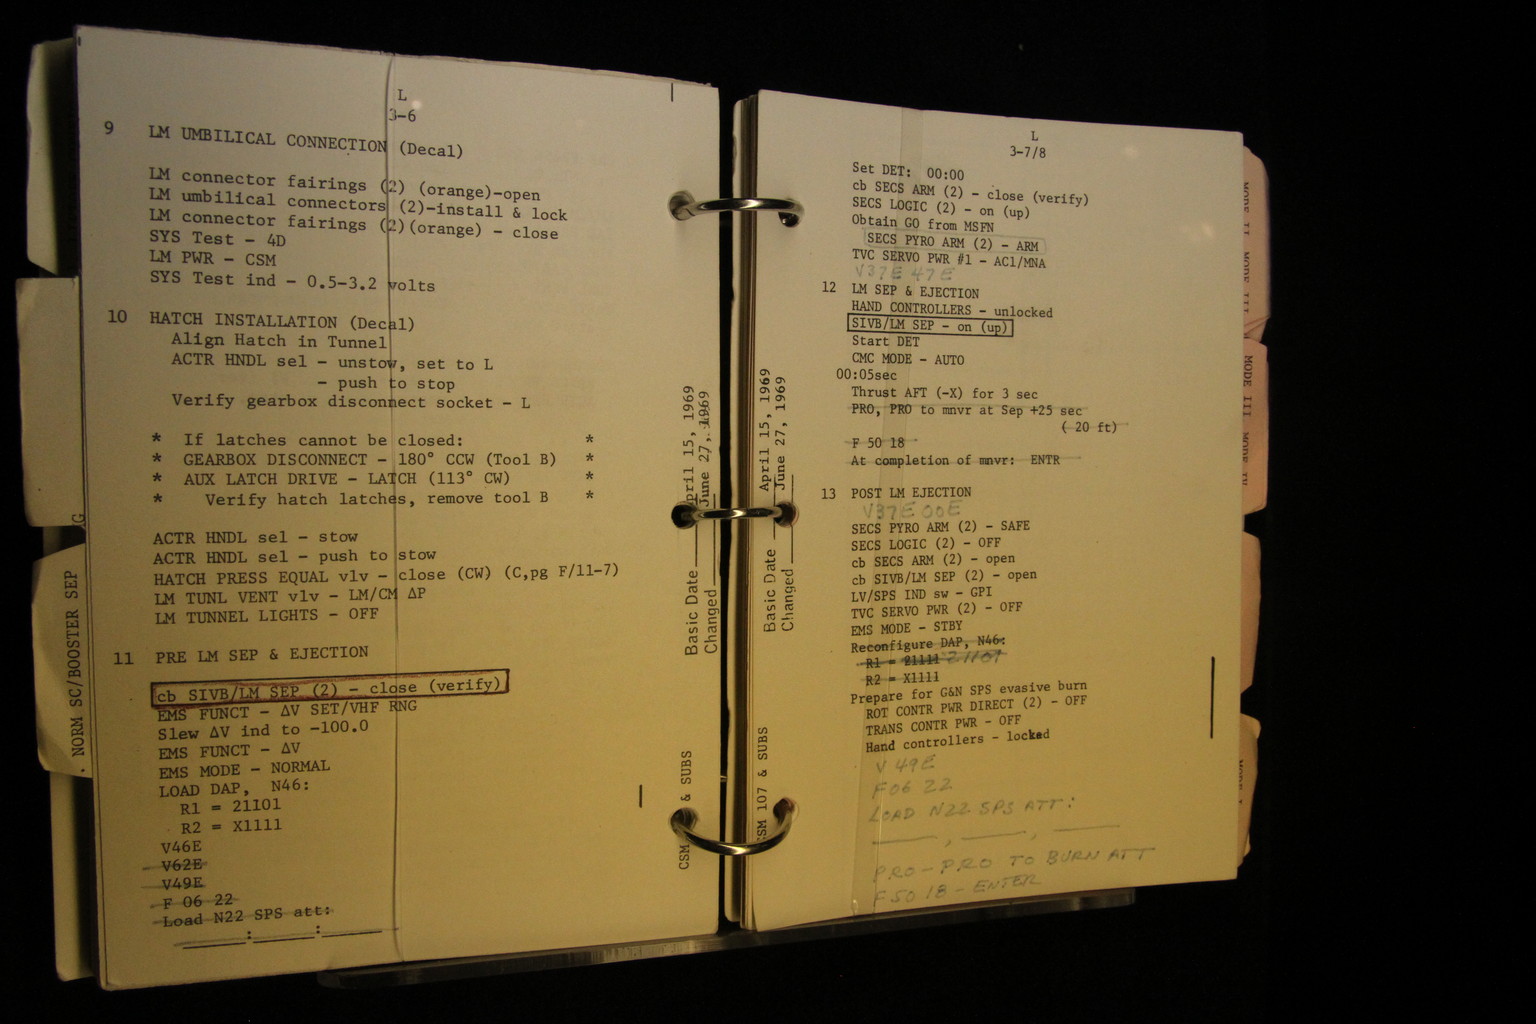 L
3-6
9 LM UMBILICAL CONNECTION (Decal)
LM connector fairings (2) (orange)-open
LM umbilical connectors (2)-install & lock
LM connector fairings (2)(orange) - close
SYS Test - 4D
LM PWR - CSM
SYS Test ind - 0.5-3.2 volts
10 HATCH INSTALLATION (Decal)
Align Hatch in Tunnel
ACTR HNDL sel - unstow, set to L
- push to stop
Verify gearbox disconnect socket - L
* If latches cannot be closed: *
* GEARBOX DISCONNECT - 180° CCW (Tool B) *
* AUX LATCH DRIVE - LATCH (113° CW) *
* Verify hatch latches, remove tool B *
ACTR HNDL sel - stow
ACTR HNDL sel - push to stow
HATCH PRESS EQUAL vlv - close (CW) (C,pg F/11-7)
LM TUNL VENT vlv - LM/CM ΔP
LM TUNNEL LIGHTS - OFF
11 PRE LM SEP & EJECTION
cb SIVB/LM SEP (2) - close (verify)
EMS FUNCT - ΔV SET/VHF RNG
Slew ΔV ind to -100.0
EMS FUNCT - ΔV
EMS MODE - NORMAL
LOAD DAP, N46:
R1 = 21101
R2 = X1111
V46E
V62E
V49E
F 06 22
Load N22 SPS att:
___:___:___
Basic Date April 15, 1969
Changed June 27, 1969
CSM & SUBS
NORM SC/BOOSTER SEP
L
3-7/8
Set DET: 00:00
cb SECS ARM (2) - close (verify)
SECS LOGIC (2) - on (up)
Obtain GO from MSFN
SECS PYRO ARM (2) - ARM
TVC SERVO PWR #1 - AC1/MNA
V37E 47E
12 LM SEP & EJECTION
HAND CONTROLLERS - unlocked
SIVB/LM SEP - on (up)
Start DET
CMC MODE - AUTO
00:05sec
Thrust AFT (-X) for 3 sec
PRO, PRO to mnvr at Sep +25 sec
( 20 ft)
F 50 18
At completion of mnvr: ENTR
13 POST LM EJECTION
V37E 00E
SECS PYRO ARM (2) - SAFE
SECS LOGIC (2) - OFF
cb SECS ARM (2) - open
cb SIVB/LM SEP (2) - open
LV/SPS IND sw - GPI
TVC SERVO PWR (2) - OFF
EMS MODE - STBY
Reconfigure DAP, N46:
R1 = 21111 21101
R2 = X1111
Prepare for G&N SPS evasive burn
ROT CONTR PWR DIRECT (2) - OFF
TRANS CONTR PWR - OFF
Hand controllers - locked
V 49E
F06 22
LOAD N22 SPS ATT:
___, ___, ___
PRO-PRO TO BURN ATT
F 50 18 - ENTER
Basic Date April 15, 1969
Changed June 27, 1969
CSM 107 & SUBS
MODE II
MODE III
MODE IV